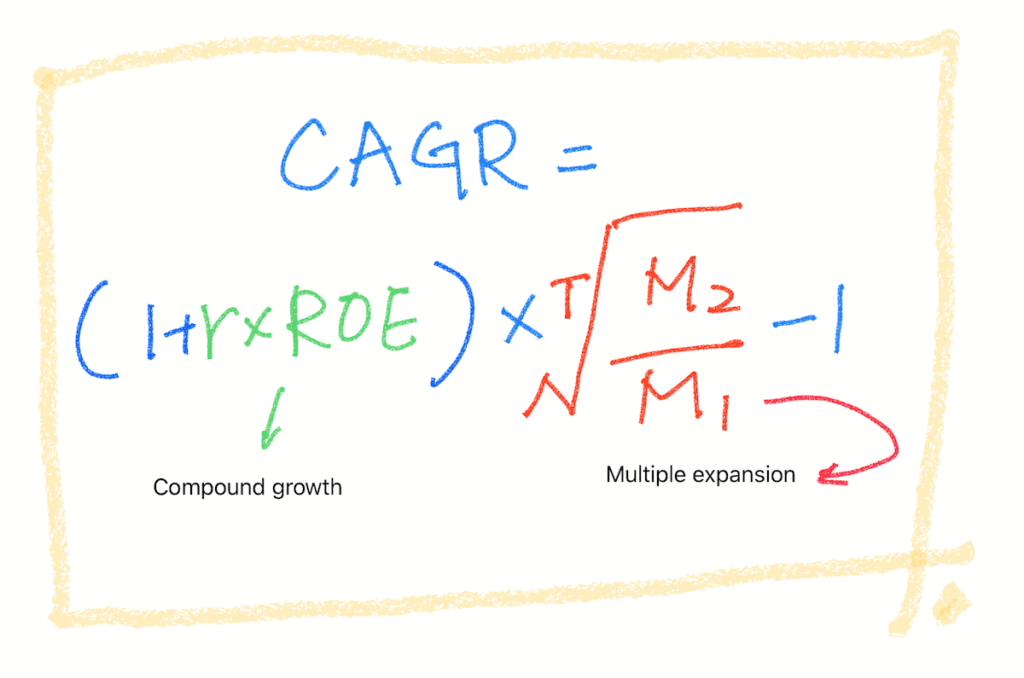 CAGR =
(1+r×ROE) × T√M2/M1 - 1
Compound growth
Multiple expansion